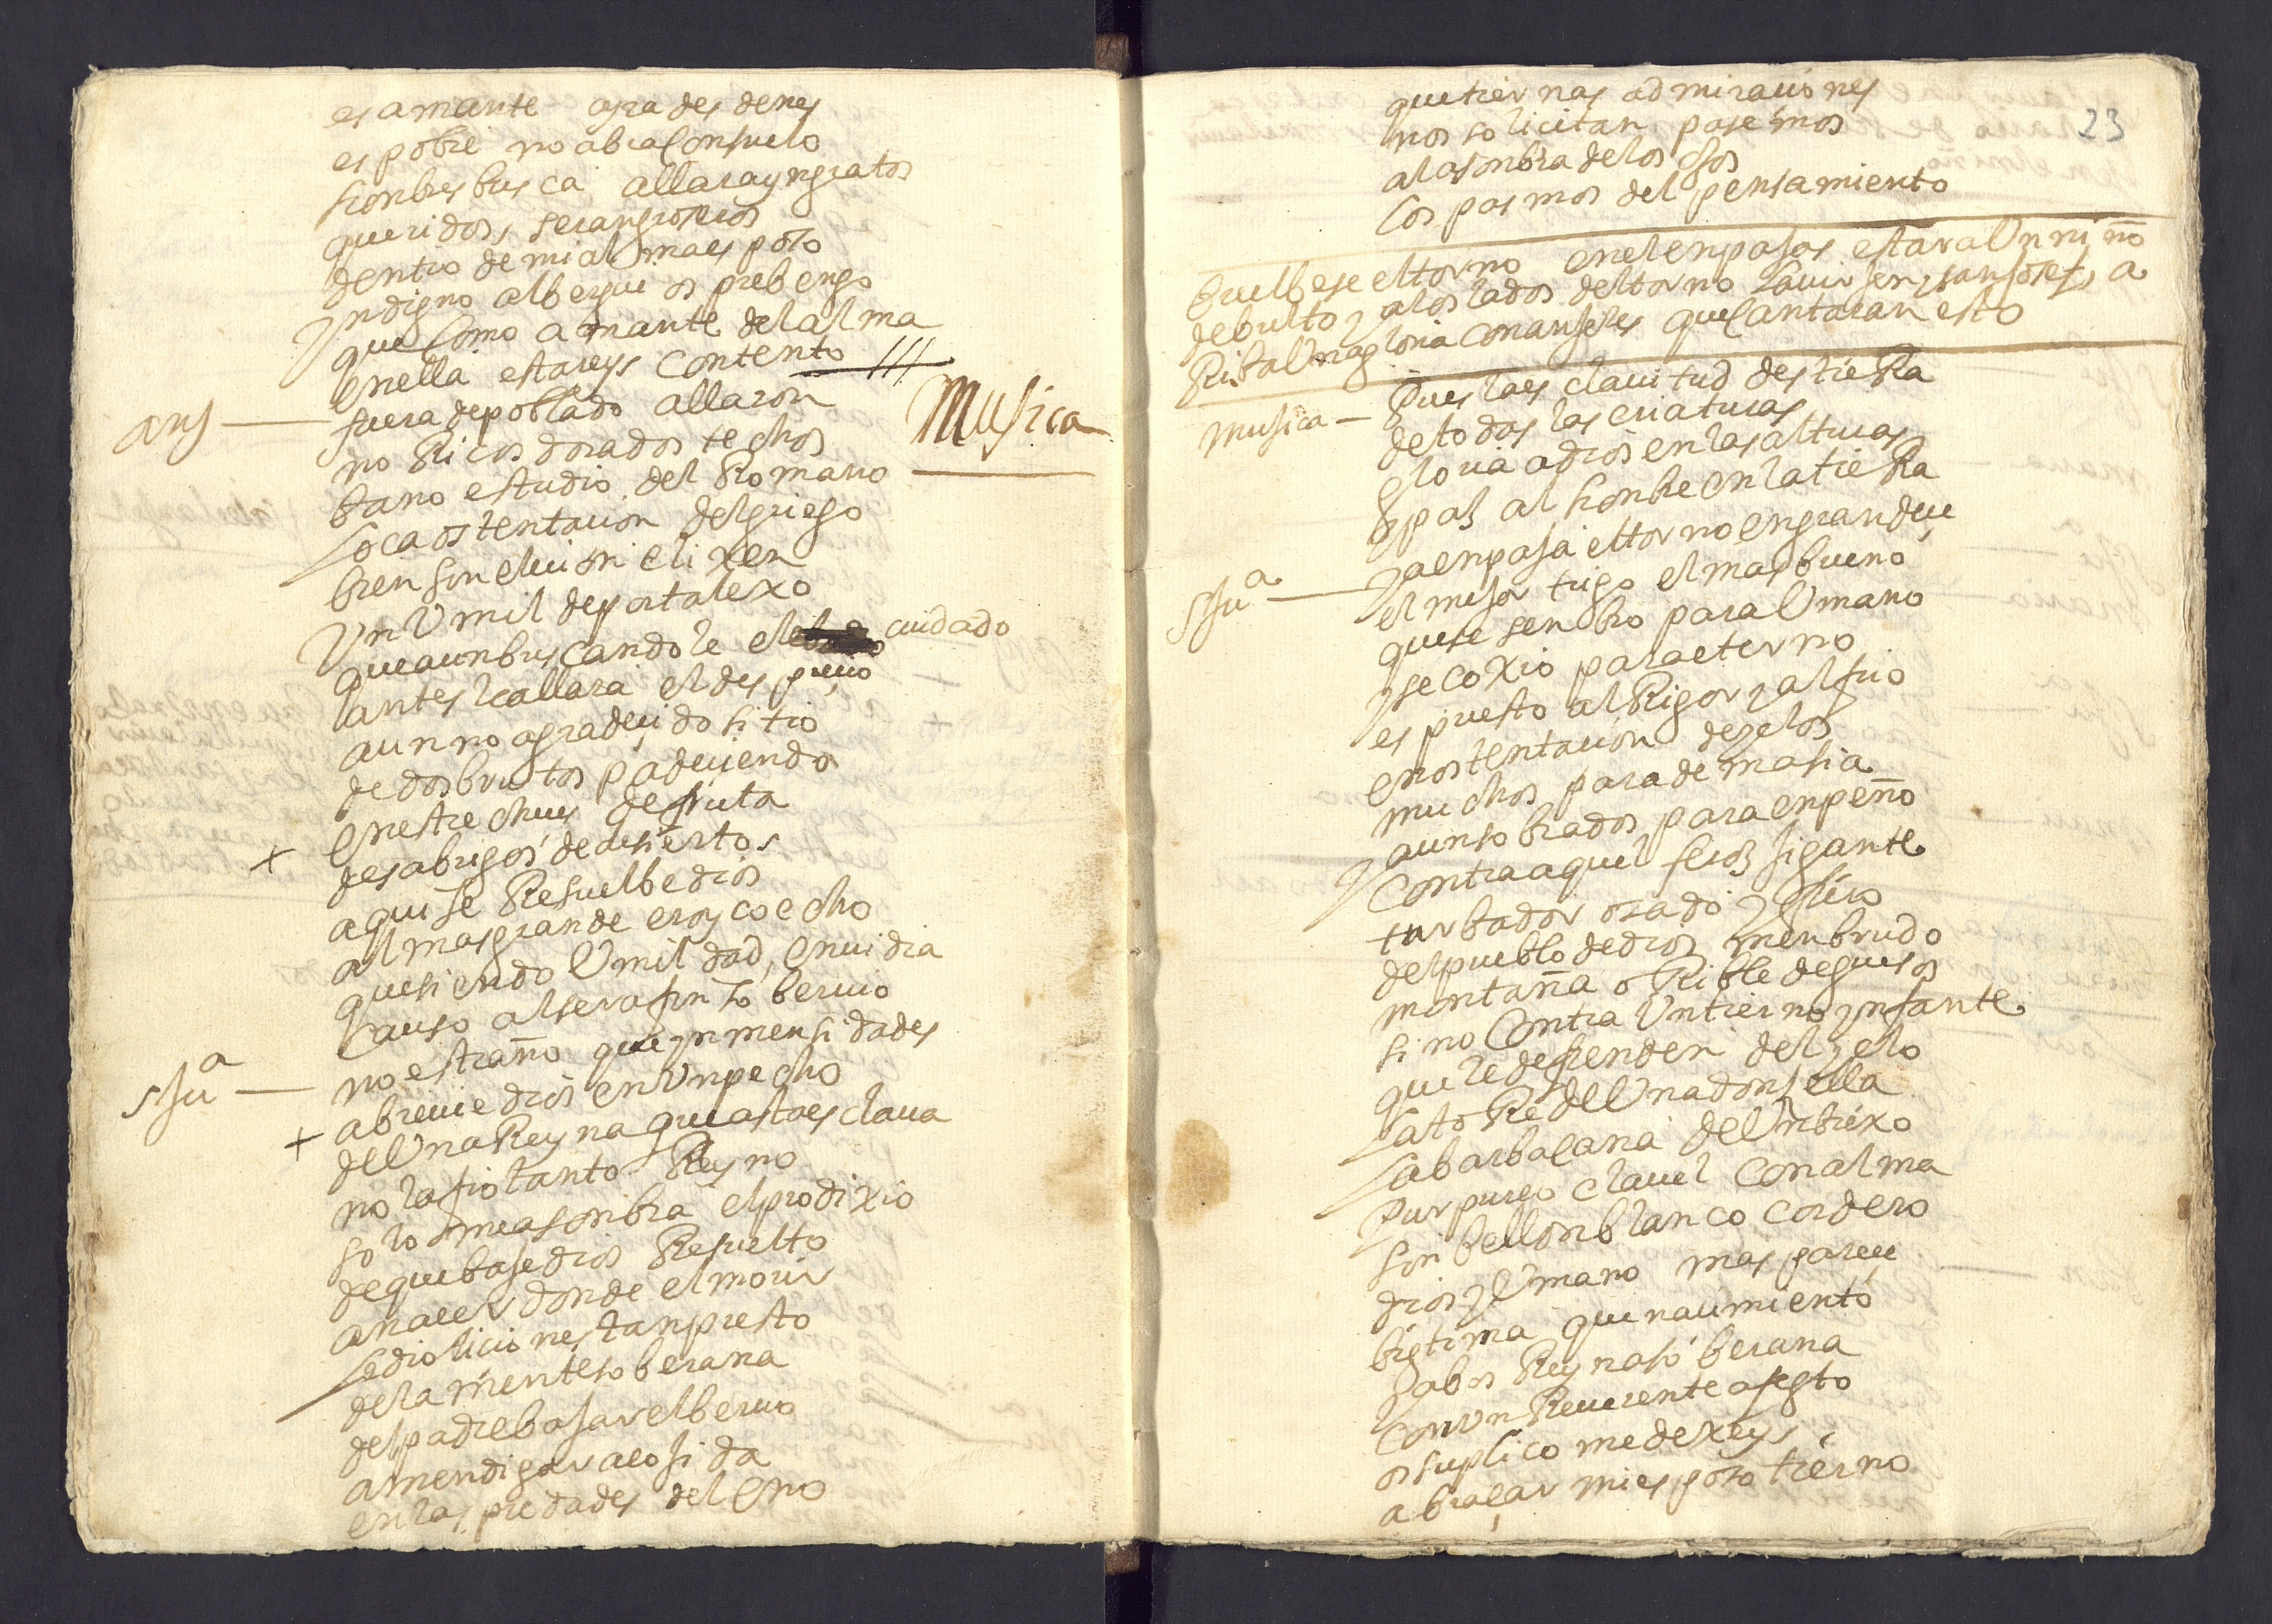 es amante agra desdenes
es pobre no abra Consuelo
honbres busca allara yngratos
queridos, seran groseros
dentro de mi alma esposo
yndigno albergue os prebengo
que Como amante del alma
en ella estareys Contento
Musica
ang fuera de poblado allaron
no Ricos dorados techos
bano estudio del Romano
loca ostentacion del griego
bien sin elecion elixen
Vn Vmilde portalexo
que aun buscandole el cuidado
antes le allara el desprecio
aun no agradecido sitio
de dos brutos padeciendo
+ en estrecheces de gruta
desabrigos de desiertos
aqui se Resuelbe dios
al mas grande eroyco echo
que siendo Vmildad, envidia
Causo al serafin soberuio
sJuª no estraño que ynmensidades
abreuie dios en Vn pecho
+ de Vna Reyna que asta esclaua
no la fio tanto Reyno
solo me asonbra el prodixio
de que baje dios Resuelto
a nacer donde el morir
le dio liciones tan presto
de la mente soberana
del padre bajar el beruo
a mendigar acojida
en las piedades del eno
23
que tiernas admiraciones
nos solicitan pasemos
al asonbra de los ojos
los pasmos del pensamiento
buelbese el torno en el enpajas estara Vn niño
de bulto y a los lados del torno la virjen, san josef, a
Riba Vna gloria con anjeles que Cantaran esto
musica Pues la esclauitud destieRa
de todas las criaturas
gloria a dios en las alturas
y paz al honbre en la tieRa
sJuª ya en paja el torno engrandece
el mejor trigo el mas bueno
que se senbro para Vmano
y se coxio para eterno
es puesto al Rigor y al frio
en ostentacion de yelos
muchos para demasia
aun sobrados para enpeño
y Contra aquel feroz jigante
turbador osado y fiero
del pueblo de dios menbrudo
montaña oRible de guesos
sino Contra Vn tierno ynfante
que le defienden del yelo
la toRe de Vna donsella
la barbacana de Vn biexo
Purpureo clauel Con alma
sin bellon blanco cordero
dios y Vmano mas parece
bigtima que nacimiento
y a bos Reyna soberana
Con Vn Reuerente afegto
os suplico me dexeys
abraçar mi esposo tierno